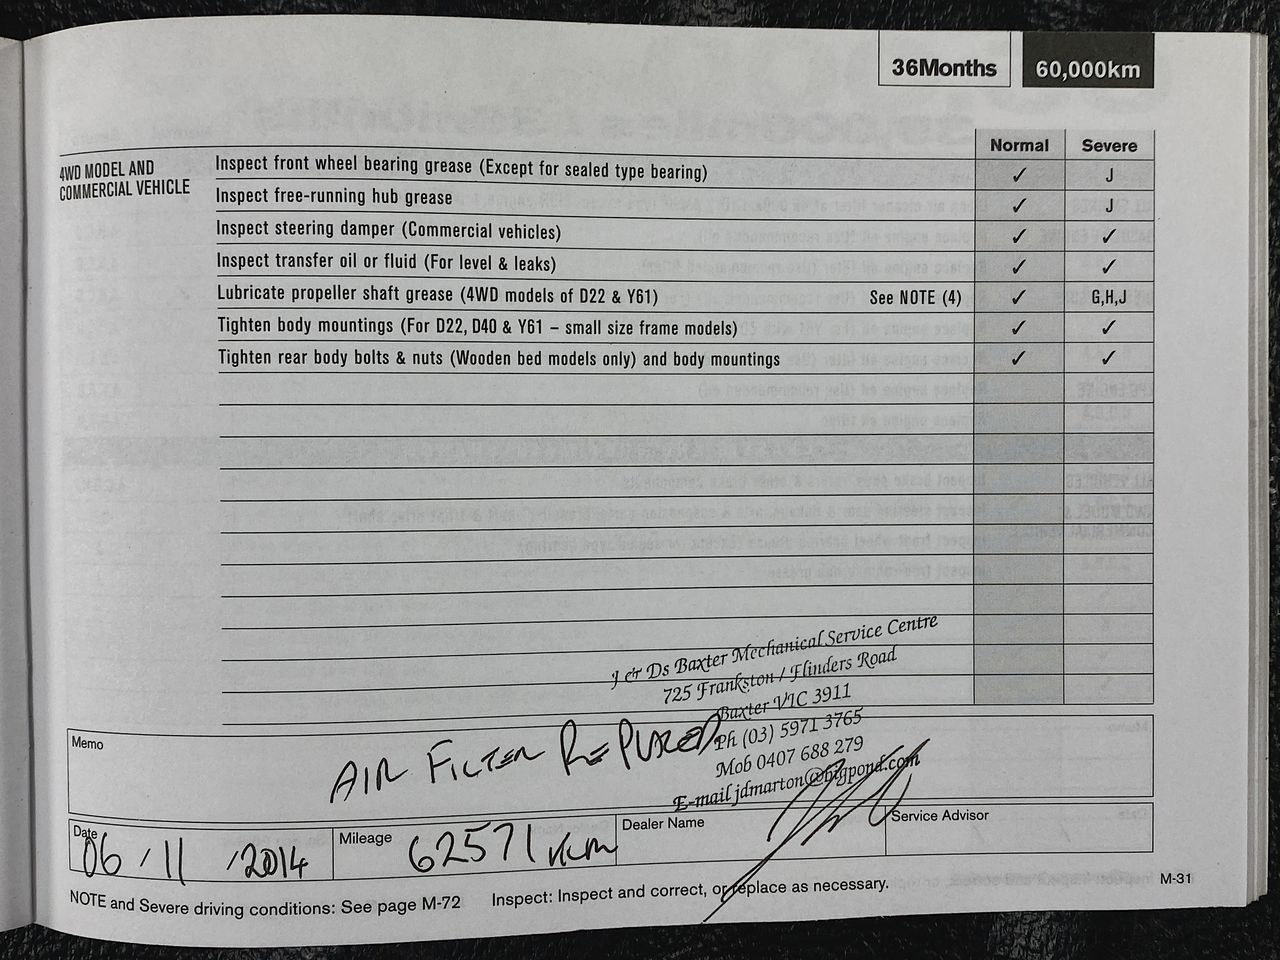 36Months 60,000km
Normal Severe
4WD MODEL AND
COMMERCIAL VEHICLE
Inspect front wheel bearing grease (Except for sealed type bearing) ✓ J
Inspect free-running hub grease ✓ J
Inspect steering damper (Commercial vehicles) ✓ ✓
Inspect transfer oil or fluid (For level & leaks) ✓ ✓
Lubricate propeller shaft grease (4WD models of D22 & Y61) See NOTE (4) ✓ G,H,J
Tighten body mountings (For D22, D40 & Y61 – small size frame models) ✓ ✓
Tighten rear body bolts & nuts (Wooden bed models only) and body mountings ✓ ✓
J & Ds Baxter Mechanical Service Centre
725 Frankston / Flinders Road
Baxter VIC 3911
Ph (03) 5971 3765
Mob 0407 688 279
E-mail jdmarton@bigpond.com
Memo
AIR FILTER REPLACED
Date
06 / 11 / 2014
Mileage
62571 km
Dealer Name
Service Advisor
NOTE and Severe driving conditions: See page M-72 Inspect: Inspect and correct, or replace as necessary.
M-31